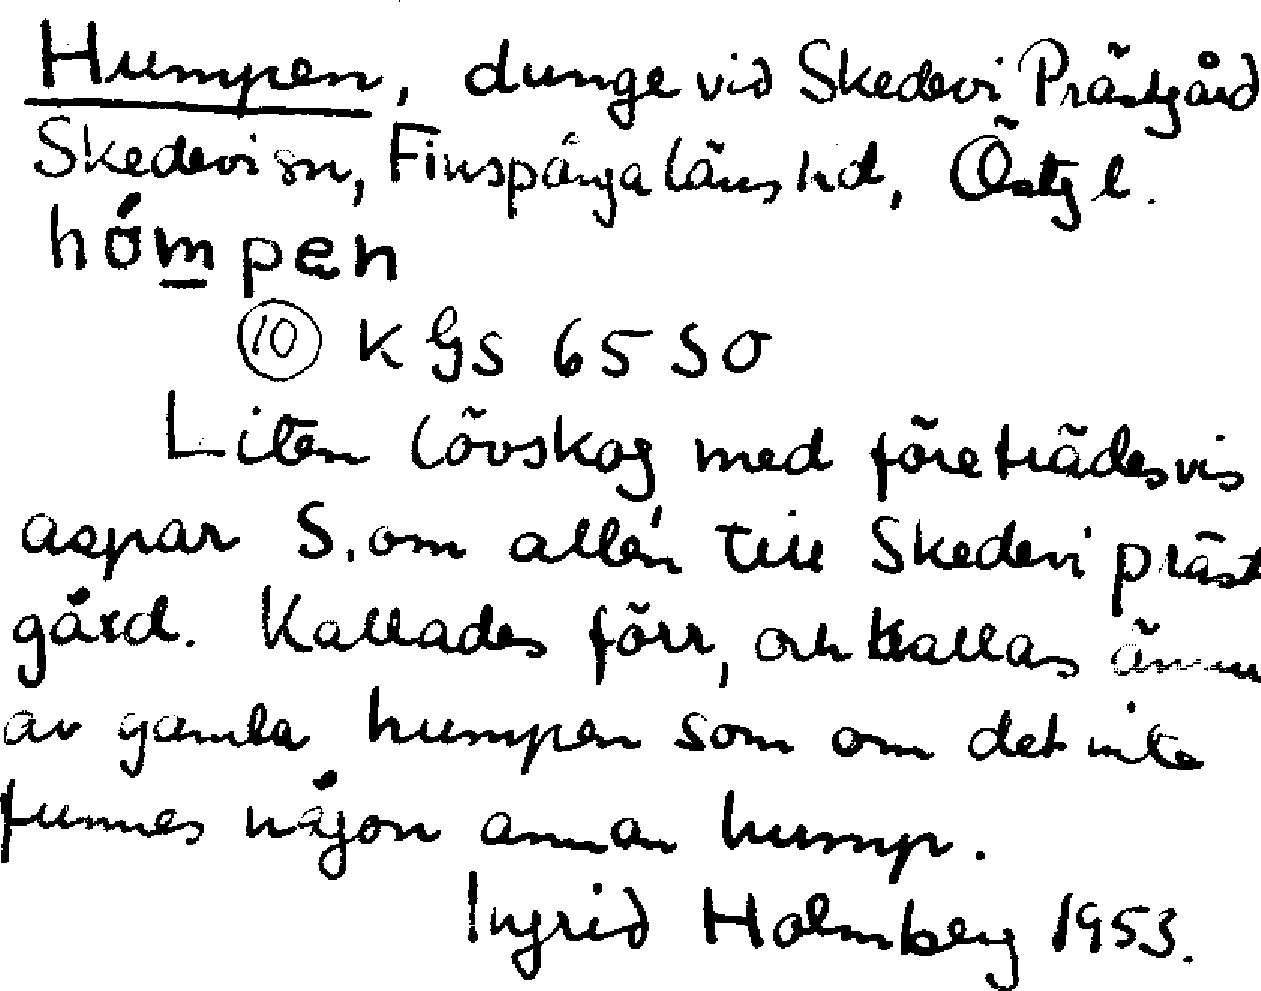 Humpen, dunge vid Skedevi Prästgård
Skedevi sn, Finspånga läns hd, Östgl.
hómpen
10 K GS 65 SO
Liten lövskog med företrädesvis
aspar S. om allén till Skedevi präst
gård. Kallades förr, och kallas ännu
av gamla humpen som om det inte
funnes någon annan hump.
Ingrid Holmberg 1953.